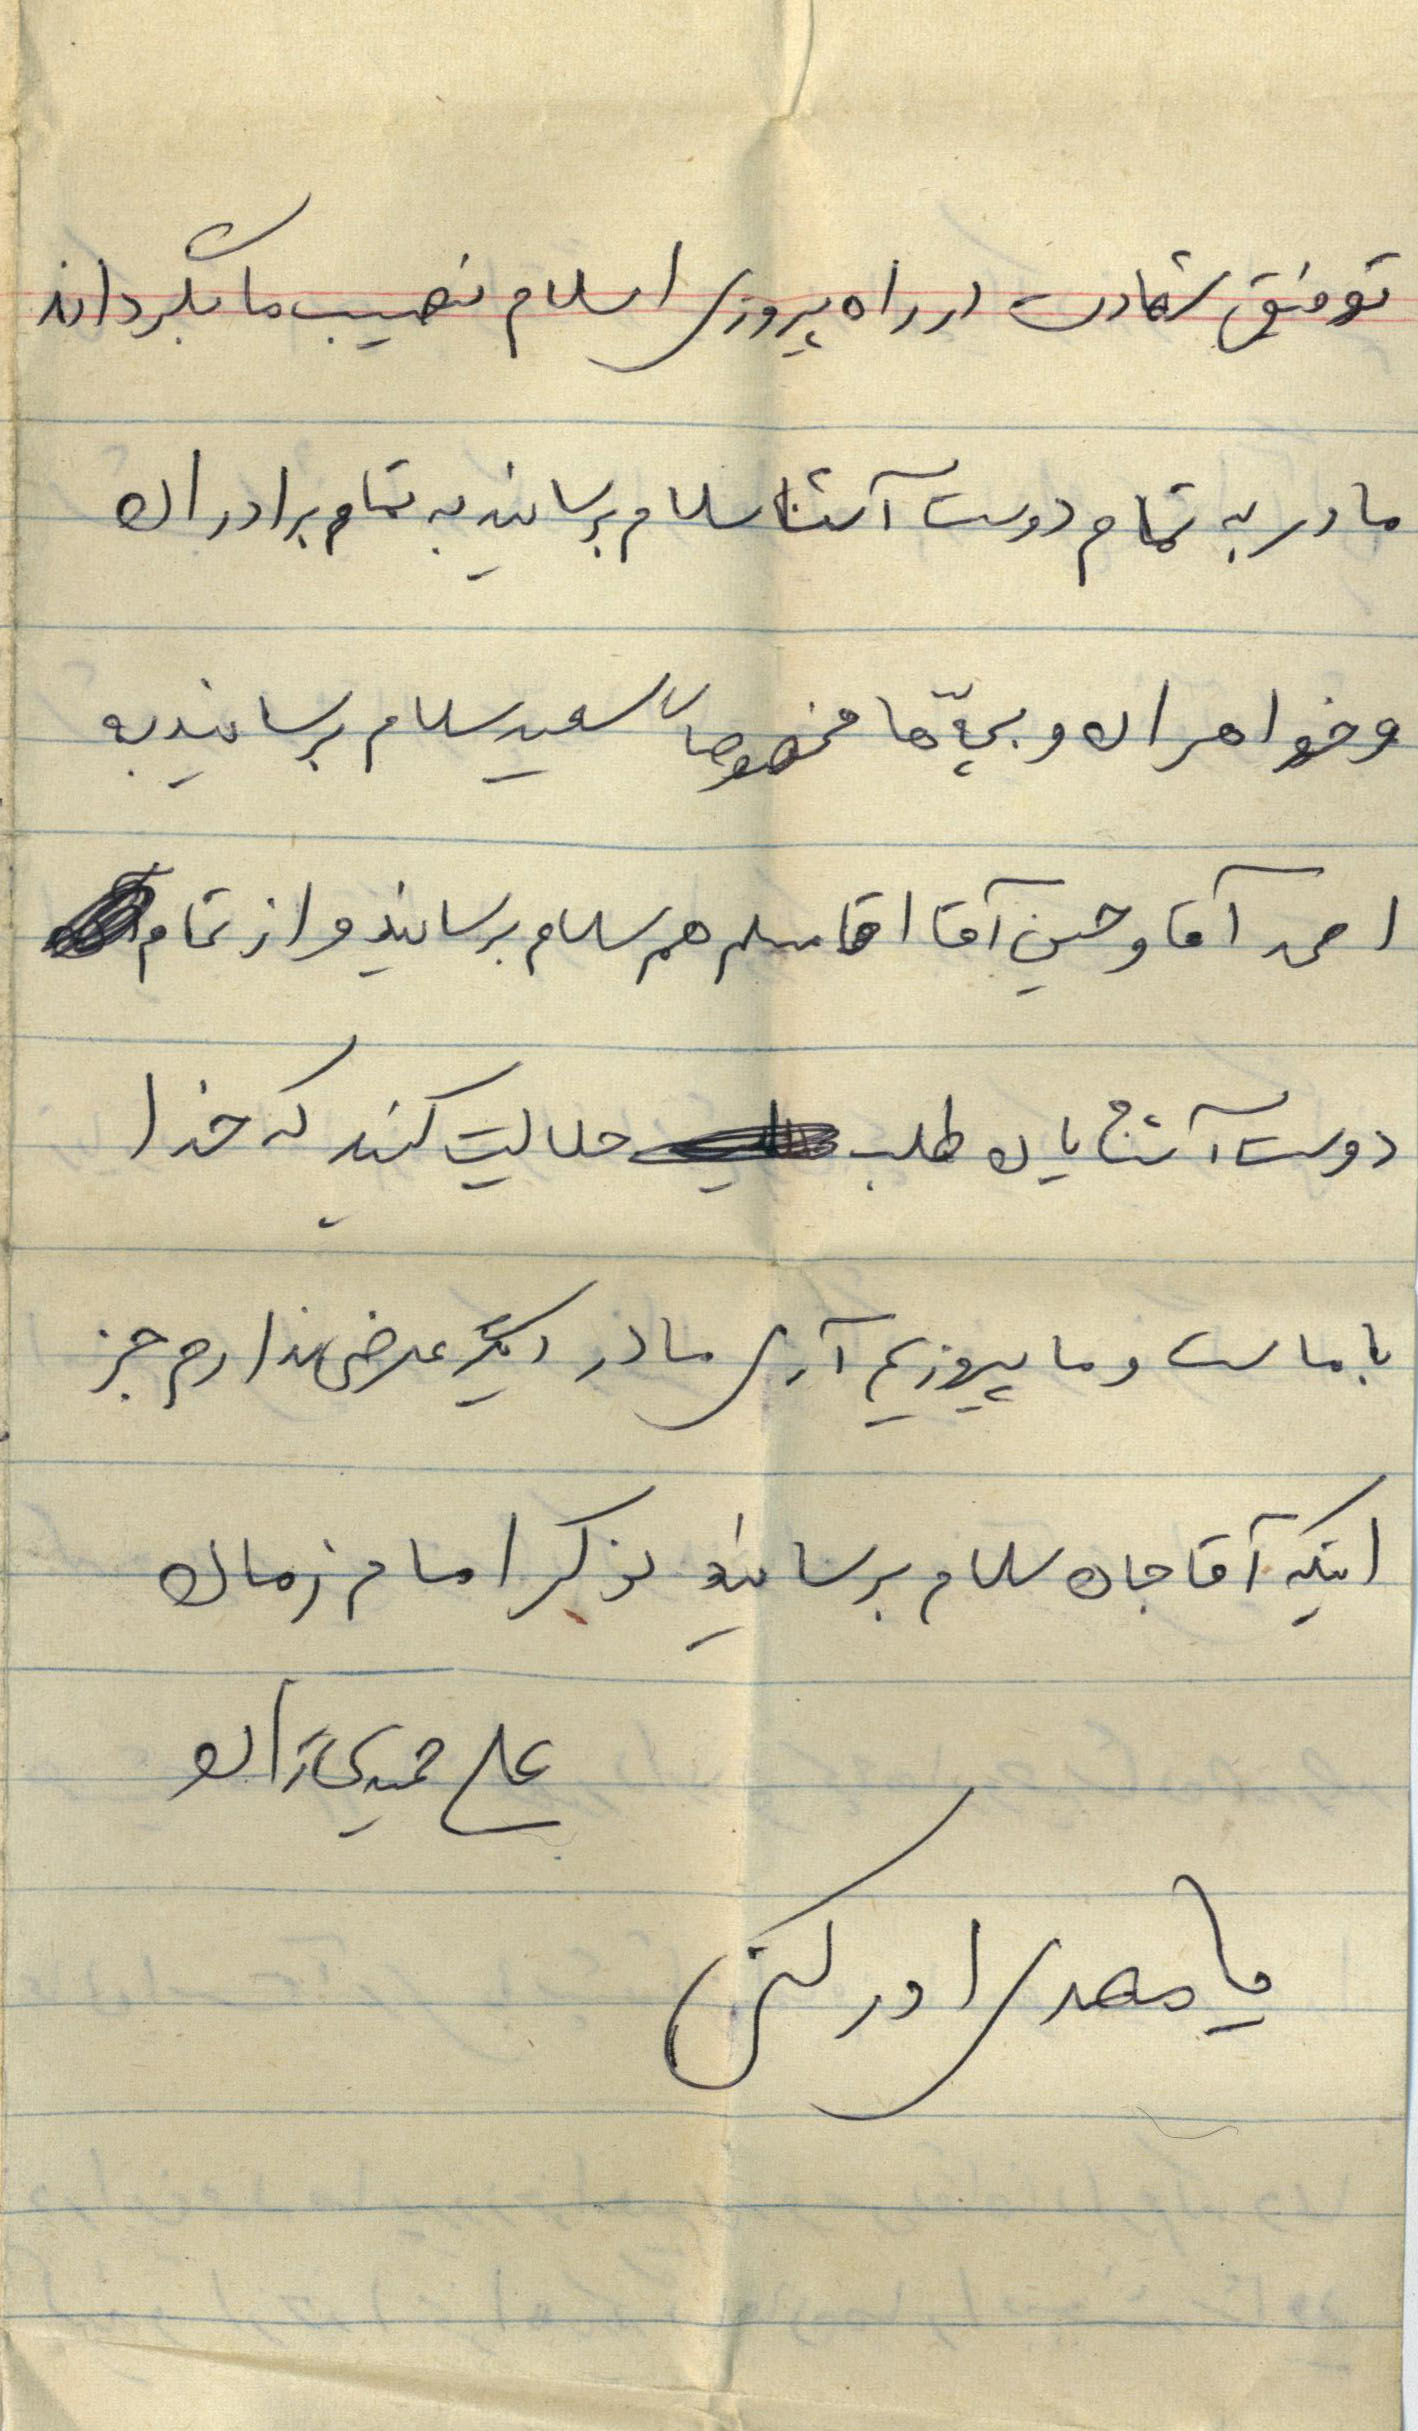 توفیق شهادت در راه پیروزی اسلام نصیب ما بگرداند
مادر به تمام دوست آشنا سلام برسانید به تمام برادران
و خواهران و بچّه‌ها مخصوصاً سعید سلام برسانید به
احمد آقا و حسین آقا اقا مسلم هم سلام برسانید و از تمام
دوست آشنایان طلب حلالیت کنید که خدا
با ماست و ما پیروزیم آری مادر دیگر عرضی ندارم جز
اینکه آقاجان سلام برسانید نوکر امام زمان
علی حمیدی
یا مهدی ادرکنی